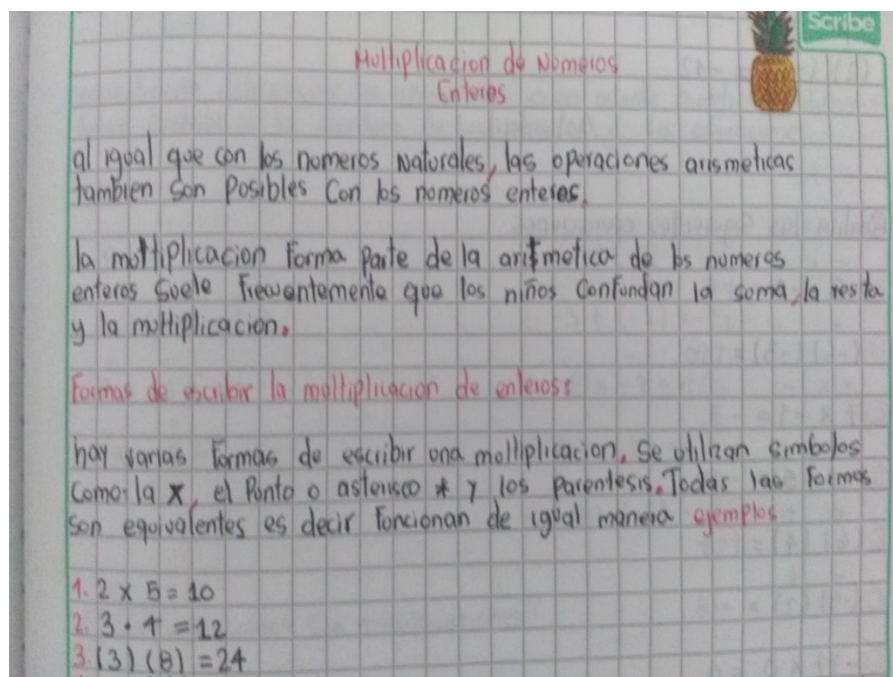 Scribe
Multiplicacion de Numeros
Enteros
al igual que con los numeros naturales, las operaciones arismeticas
tambien son posibles con los numeros enteros.
la multiplicacion forma parte de la aritmetica de los numeros
enteros suele frecuentemente que los niños confundan la suma, la resta
y la multiplicacion.
Formas de escribir la multiplicacion de enteros:
hay varias formas de escribir una multiplicacion. se utilizan simbolos
como: la x, el Punto o asterisco * y los parentesis. Todas las formas
son equivalentes es decir funcionan de igual manera ejemplos
1. 2 x 5 = 10
2. 3 · 4 = 12
3. (3) (8) = 24